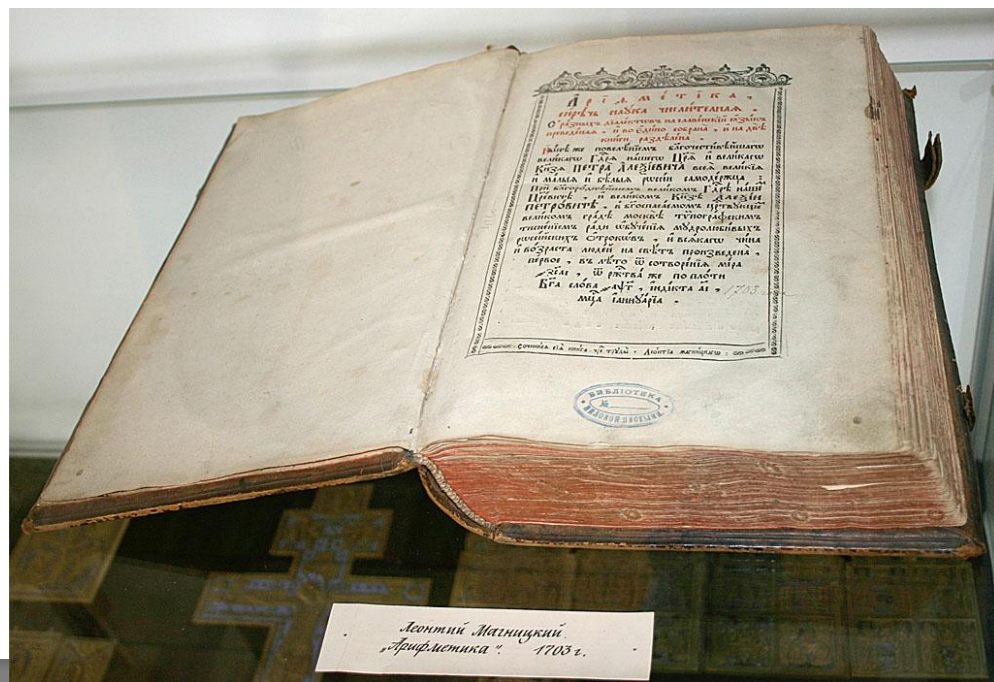 АРІѲМЕ́ТІКА,
сирѣчь наука числителная.
С̾ разныхъ діалектовъ на славенскій языкъ
преведеная, и во едино собрана, и на двѣ
книги раздѣлена.
Нн҃ѣ же повелѣніемъ бл҃гочестивѣйшагѡ
великагѡ Гдⷭ҇ря нашегѡ Цр҃я и великагѡ
Кн҃зя ПЕТРА̀ АЛЕѮІЕВИЧА всея̀ великія
и малыя и бѣлыя рѡссіи самодержца:
При бл҃городнѣйшемъ великомъ Гдⷭ҇рѣ нашемъ
Цр҃евичѣ, и великомъ Кн҃зѣ АЛЕѮІИ
ПЕТРОВИЧѢ, в̾ бг҃оспасаемомъ црⷭ҇твующемъ
великомъ градѣ москвѣ тѷпографскимъ
тисненіемъ ради ѡбученія мудролюбивыхъ
рѡссійскихъ отроковъ, и всякагѡ чина
и возраста людей на свѣтъ произведена̀,
первое, въ лѣто ѿ сотворенія міра
҂зс҃аі, ѿ ржⷭ҇тва̀ же по плоти
Бг҃а слова ҂аѱ҃г, індікта а҃і,
мцⷭ҇а іаннуаріа.
1703
Сочинися сія книга чрез̾ труды̀ Леонтіа магницкагѡ
БИБЛІОТЕКА
№
Леонтий Магницкий
„Арифметика“. 1703 г.